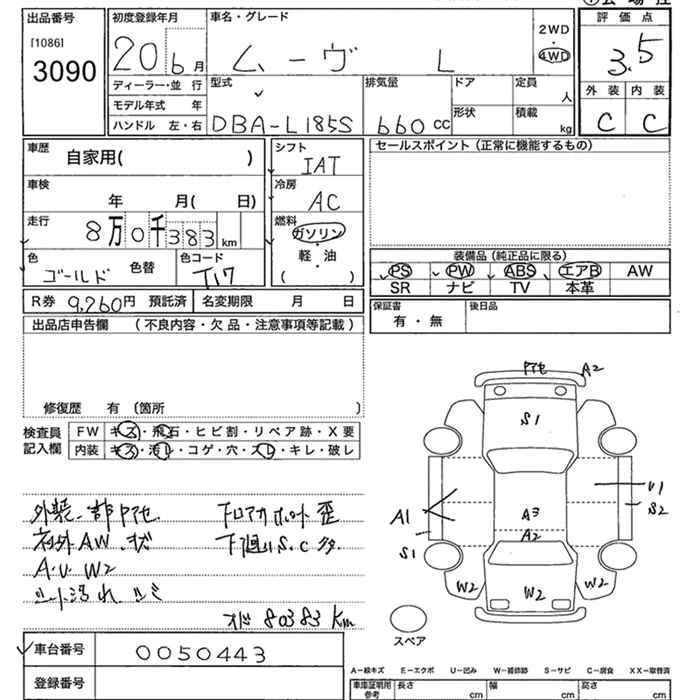 出品番号
[1086]
3090
初度登録年月
20 6 月
車名・グレード
ムーヴ L
2WD
・
4WD
評価点
3.5
ディーラー・並 行
モデル年式 年
ハンドル 左・右
型式
DBA-L185S
排気量
660 cc
ドア
形状
定員
人
積載
kg
外装 内装
C C
車歴
自家用( )
シフト
IAT
セールスポイント(正常に機能するもの)
車検
年 月( 日)
冷房
AC
走行
8万 0千 383 km
燃料
ガソリン
軽・油
( )
色
ゴールド
色替
色コード
T17
装備品(純正品に限る)
PS PW ABS エアB AW
SR ナビ TV 本革
R券 9,260円 預託済 名変期限 月 日
保証書
有・無
後日品
出品店申告欄 (不良内容・欠品・注意事項等記載)
修復歴 有 〔箇所 〕
検査員
記入欄
FW キズ・飛石・ヒビ割・リペア跡・X要
内装 キズ・汚レ・コゲ・穴・スレ・キレ・破レ
A2
S1
U1
S2
A1
A3
A2
S1
W2 W2 W2
外装一部
社外AW.状
A.U W2
シート汚れ.シミ
下廻りS.C多.
歪
80383 Km
スペア
車台番号 0050443
登録番号
A-線キズ E-エクボ U-凹み W-補修跡 S-サビ C-腐食 XX-取替済
車庫証明用
参考
長さ cm 幅 cm 高さ cm